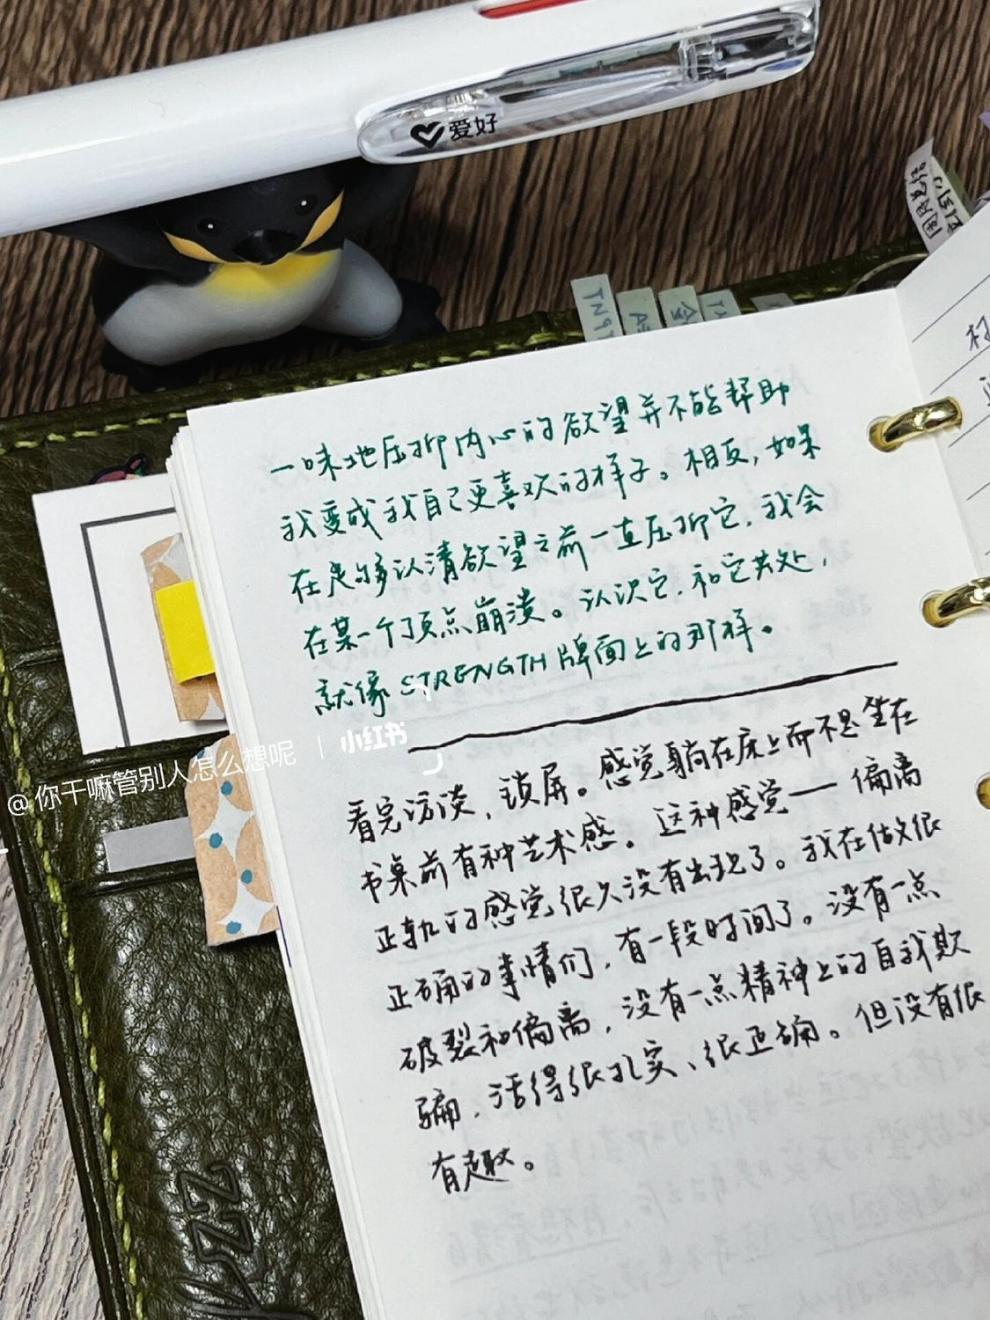 爱好
TN
一味地压抑内心的欲望并不能帮助
我变成我自己更喜欢的样子。相反，如果
在足够认清欲望之前一直压抑它，我会
在某一个顶点崩溃。认识它，和它共处，
就像 STRENGTH 牌面上的那样。
小红书
@你干嘛管别人怎么想呢
看完访谈，锁屏。感觉躺在床上而不是坐在
书桌前有种艺术感。这种感觉——偏离
正轨的感觉很久没有出现了。我在做很
正确的事情们，有一段时间了。没有一点
破裂和偏离，没有一点精神上的自我欺
骗，活得很扎实、很正确。但没有很
有趣。